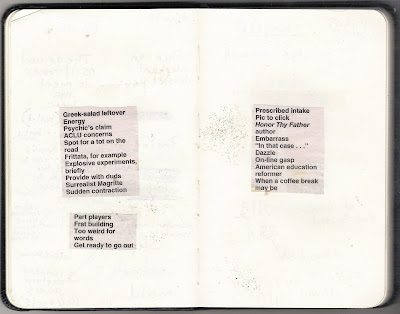 Greek-salad leftover
Energy
Psychic's claim
ACLU concerns
Spot for a tot on the
road
Frittata, for example
Explosive experiments,
briefly
Provide with duds
Surrealist Magritte
Sudden contraction
Part players
Frat building
Too weird for
words
Get ready to go out
Prescribed intake
Pic to click
Honor Thy Father
author
Embarrass
"In that case . . ."
Dazzle
On-line gasp
American education
reformer
When a coffee break
may be